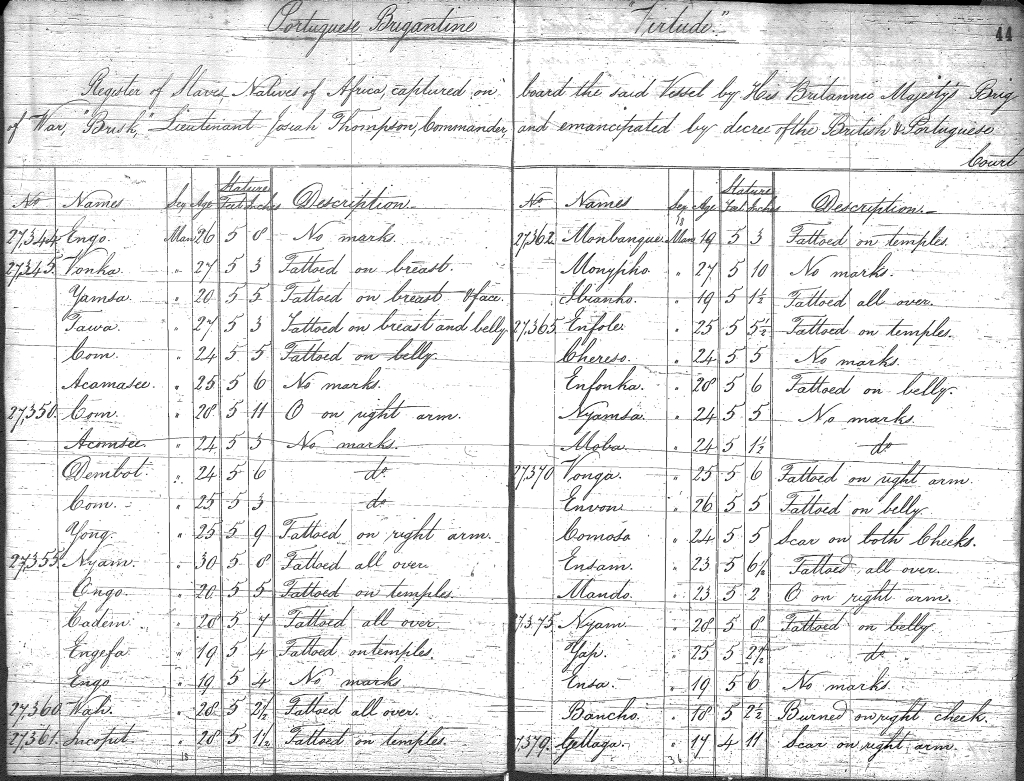 Portuguese Brigantine "Virtude".
44
Register of Slaves, Natives of Africa, captured on board the said Vessel by His Britannic Majesty's Brig
of War, "Brisk," Lieutenant Josiah Thompson, Commander, and emancipated by decree of the British & Portuguese
Court
No Names Sex Age Stature Feet Inches Description.
27,344 Engo. Man 26 5 8 No marks.
27,345. Vonha. " 27 5 3 Tattoed on breast.
Yamsa " 20 5 5 Tattoed on breast & face.
Tawa. " 27 5 3 Tattoed on breast and belly
Com. " 24 5 5 Tattoed on belly.
Acamasee. " 25 5 6 No marks.
27,350. Com. " 28 5 11 O on right arm.
Acomsee. " 24 5 3 No marks.
Dembot. " 24 5 6 do
Com. " 25 5 3 do
Yong. " 25 5 9 Tattoed on right arm.
27,355. Nyam. " 30 5 8 Tattoed all over.
Engo. " 20 5 5 Tattoed on temples.
Cadem. " 28 5 7 Tattoed all over
Engefa " 19 5 4 Tattoed on temples.
Engo " 19 5 4 No marks
27,360. Wah. " 28 5 2½ Tattoed all over.
27,361. Incofut. " 28 5 1½ Tattoed on temples.
18
No Names Sex Age Stature Feet Inches Description.
18
27,362 Monbanque. Man 19 5 3 Tattoed on temples.
Monypho " 27 5 10 No marks.
Ibianho. " 19 5 1½ Tattoed all over.
27,365 Enfole. " 25 5 5½ Tattoed on temples.
Chereso. " 24 5 5 No marks.
Enfonha. " 28 5 6 Tattoed on belly.
Nyamsa. " 24 5 5 No marks.
Moba. " 24 5 1½ do
27,370 Vonga. " 25 5 6 Tattoed on right arm
Envon. " 26 5 5 Tattoed on belly
Comosa " 24 5 5 Scar on both Cheeks.
Ensam. " 23 5 6½ Tattoed all over.
Mando. " 23 5 2 O on right arm.
27,375 Nyam. " 28 5 8 Tattoed on belly
Yap. " 25 5 2½ do
Ensa. " 19 5 6 No marks.
Bancho. " 18 5 2½ Burned on right cheek.
27,379. Gellaga. " 17 4 11 Scar on right arm.
36